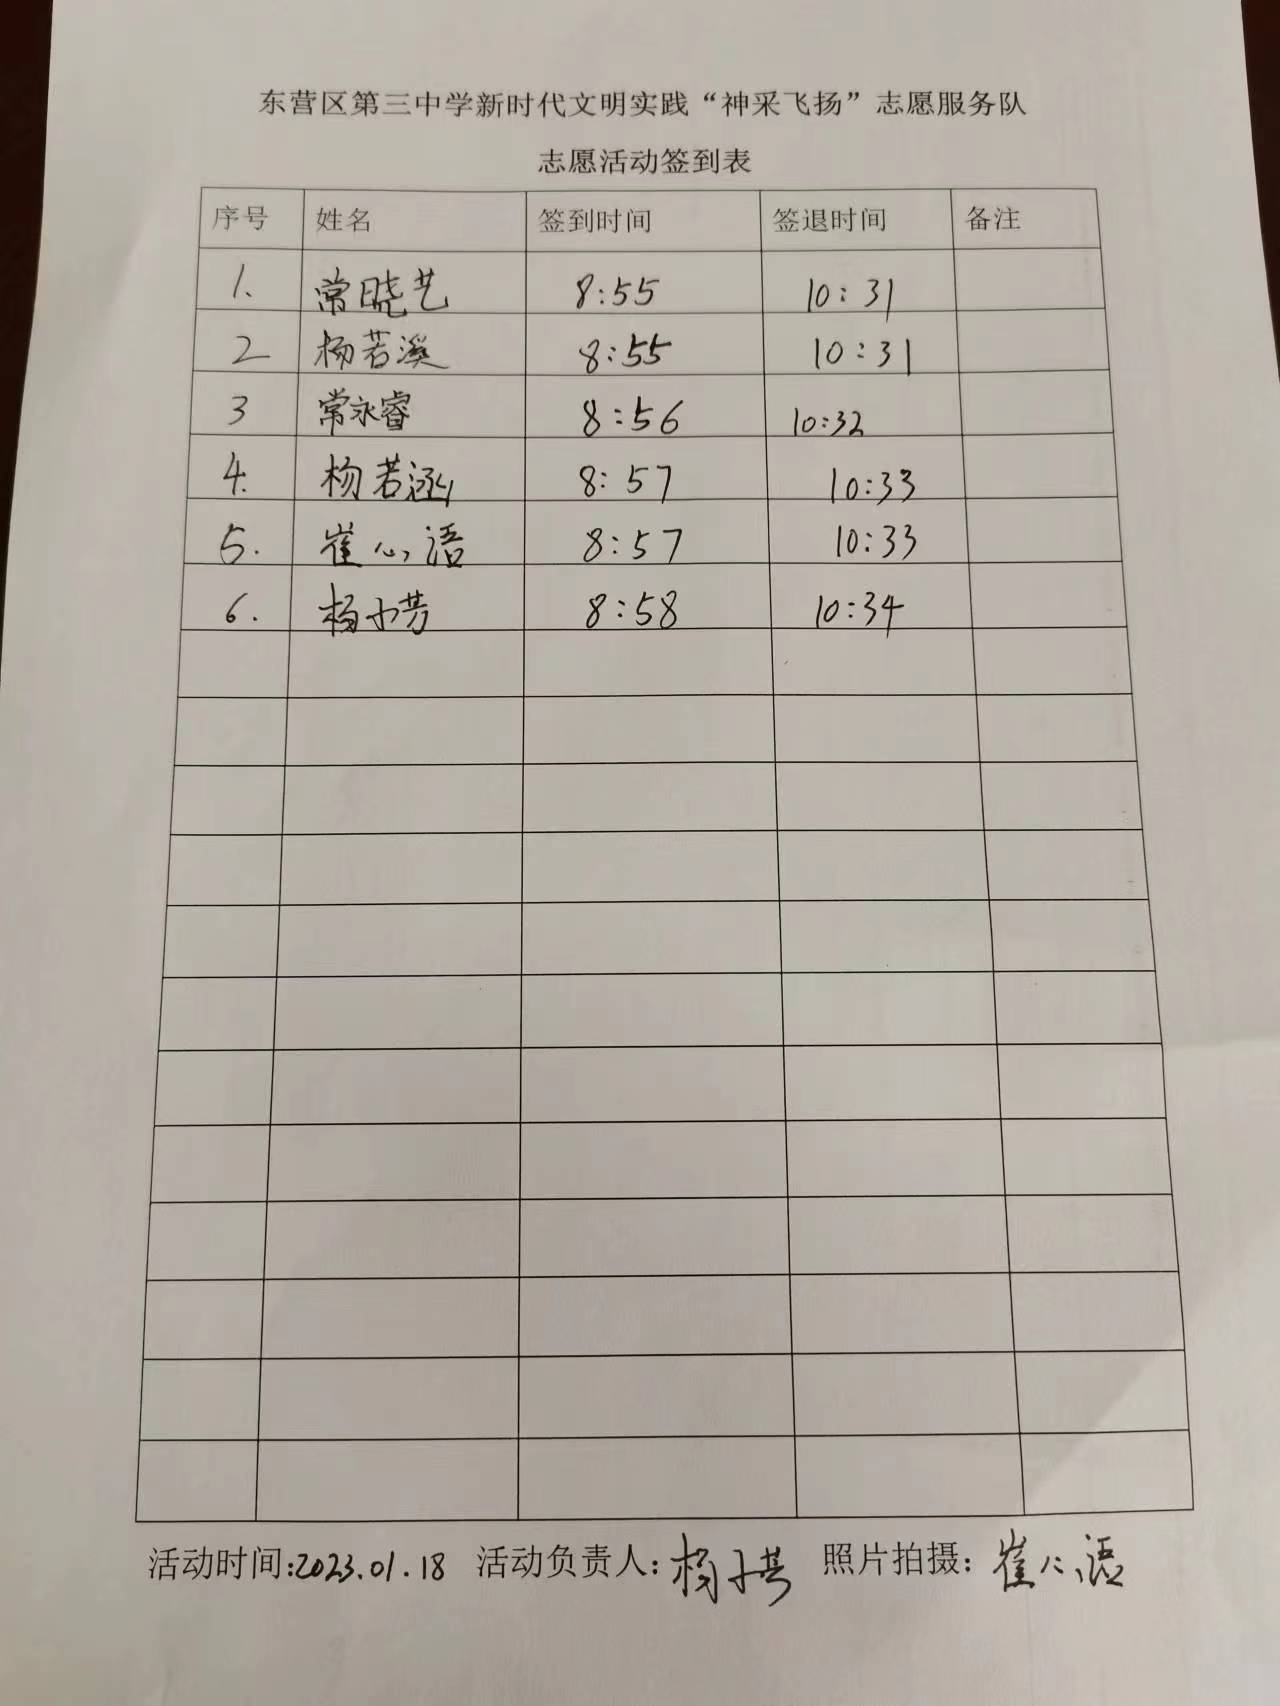 东营区第三中学新时代文明实践“神采飞扬”志愿服务队
志愿活动签到表
序号 姓名 签到时间 签退时间 备注
1. 常晓艺 8:55 10:31
2 杨若溪 8:55 10:31
3 常永睿 8:56 10:32
4. 杨若涵 8:57 10:33
5. 崔心语 8:57 10:33
6. 杨小芳 8:58 10:34
活动时间:2023.01.18 活动负责人: 杨小芳 照片拍摄: 崔心语